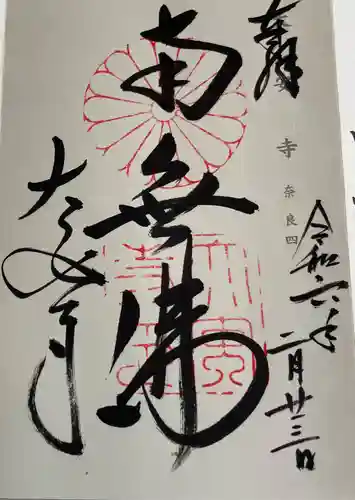 奉拝
寺
奈良四
令和六年
二月廿三日
南無佛
大安寺